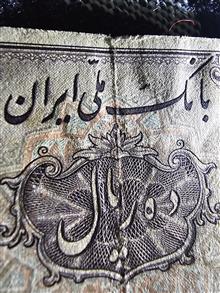 بانک ملی ایران
ده ریال